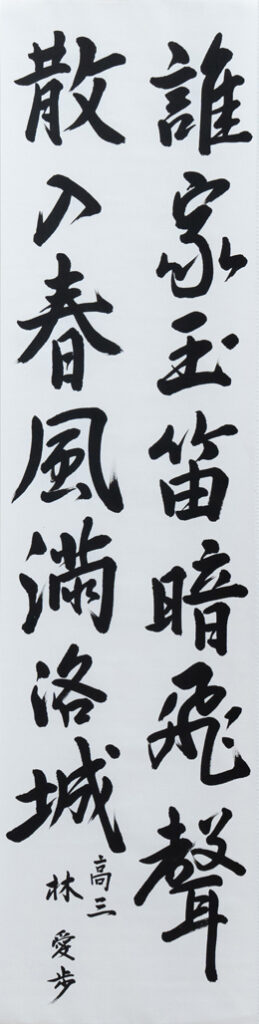 誰家玉笛暗飛聲
散入春風滿洛城
高三
林愛步